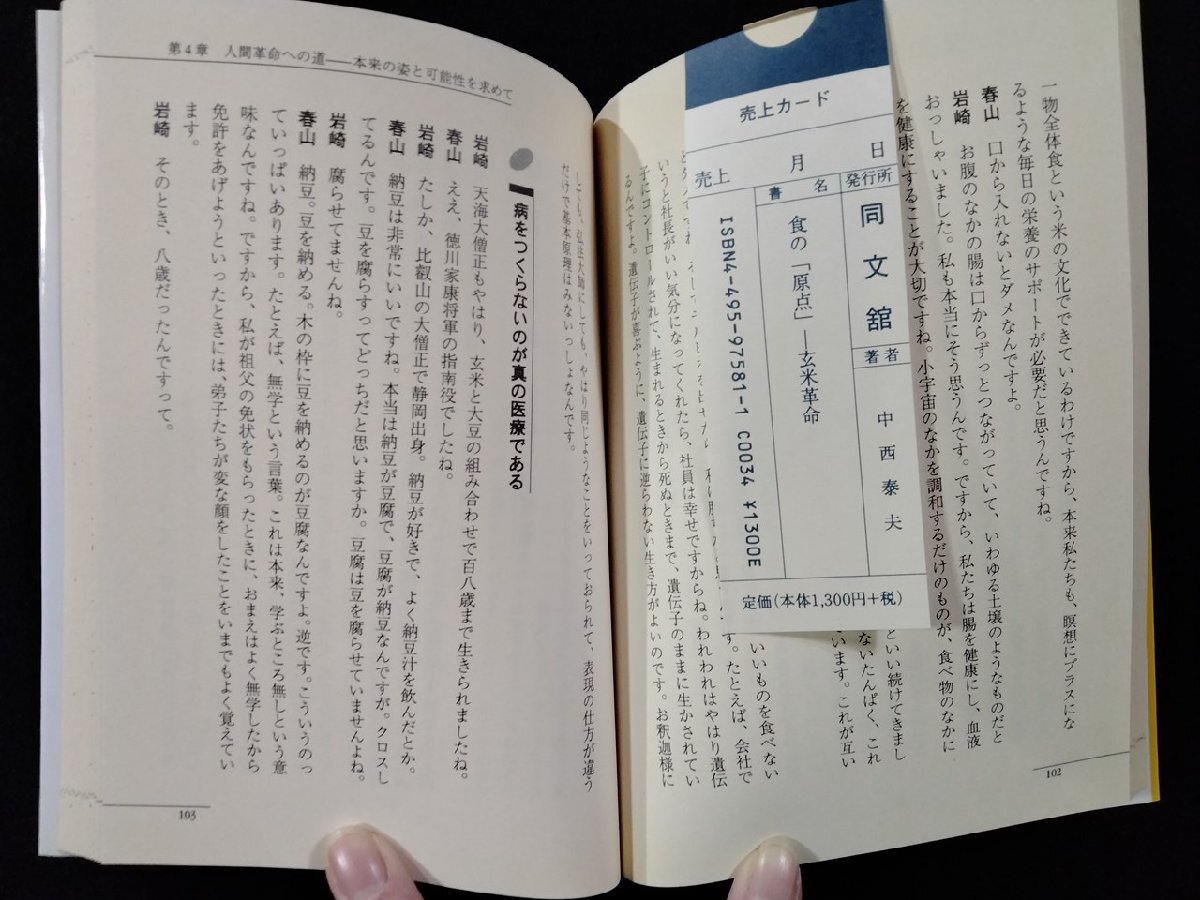 一物全体食という米の文化でできているわけですから、本来私たちも、瞑想にプラスにな
るような毎日の栄養のサポートが必要だと思うんですね。
春山 口から入れないとダメなんですよ。
岩崎 お腹のなかの腸は口からずっとつながっていて、いわゆる土壌のようなものだと
おっしゃいました。私も本当にそう思うんです。ですから、私たちは腸を健康にし、血液
を健康にすることが大切ですね。小宇宙のなかを調和するだけのものが、食べ物のなかに
といい続けてきまし
ないたんぱく、これ
います。これが互い
いいものを食べない
す。たとえば、会社で
いうと社長がいい気分になってくれたら、社員は幸せですからね。われわれはやはり遺伝
子にコントロールされて、生まれるときから死ぬときまで、遺伝子のままに生かされてい
るんですよ。遺伝子が喜ぶように、遺伝子に逆らわない生き方がよいのです。お釈迦様に
102
売上カード
売上 月 日
発行所 同文舘
著者 中西泰夫
書名 食の「原点」―玄米革命
ISBN4-495-97581-1 C0034 ¥1300E
定価(本体1,300円+税)
第4章 人間革命への道――本来の姿と可能性を求めて
しても、弘法大師にしても、やはり同じようなことをいっておられて、表現の仕方が違う
だけで基本原理はみないっしょなんです。
病をつくらないのが真の医療である
岩崎 天海大僧正もやはり、玄米と大豆の組み合わせで百八歳まで生きられましたね。
春山 ええ、徳川家康将軍の指南役でしたね。
岩崎 たしか、比叡山の大僧正で静岡出身。納豆が好きで、よく納豆汁を飲んだとか。
春山 納豆は非常にいいですね。本当は納豆が豆腐で、豆腐が納豆なんですが。クロスし
てるんです。豆を腐らすってどっちだと思いますか。豆腐は豆を腐らせていませんよね。
岩崎 腐らせてませんね。
春山 納豆。豆を納める。木の枠に豆を納めるのが豆腐なんですよ。逆です。こういうのっ
ていっぱいあります。たとえば、無学という言葉。これは本来、学ぶところ無しという意
味なんですね。ですから、私が祖父の免状をもらったときに、おまえはよく無学したから
免許をあげようといったときには、弟子たちが変な顔をしたことをいまでもよく覚えてい
ます。
岩崎 そのとき、八歳だったんですって。
103